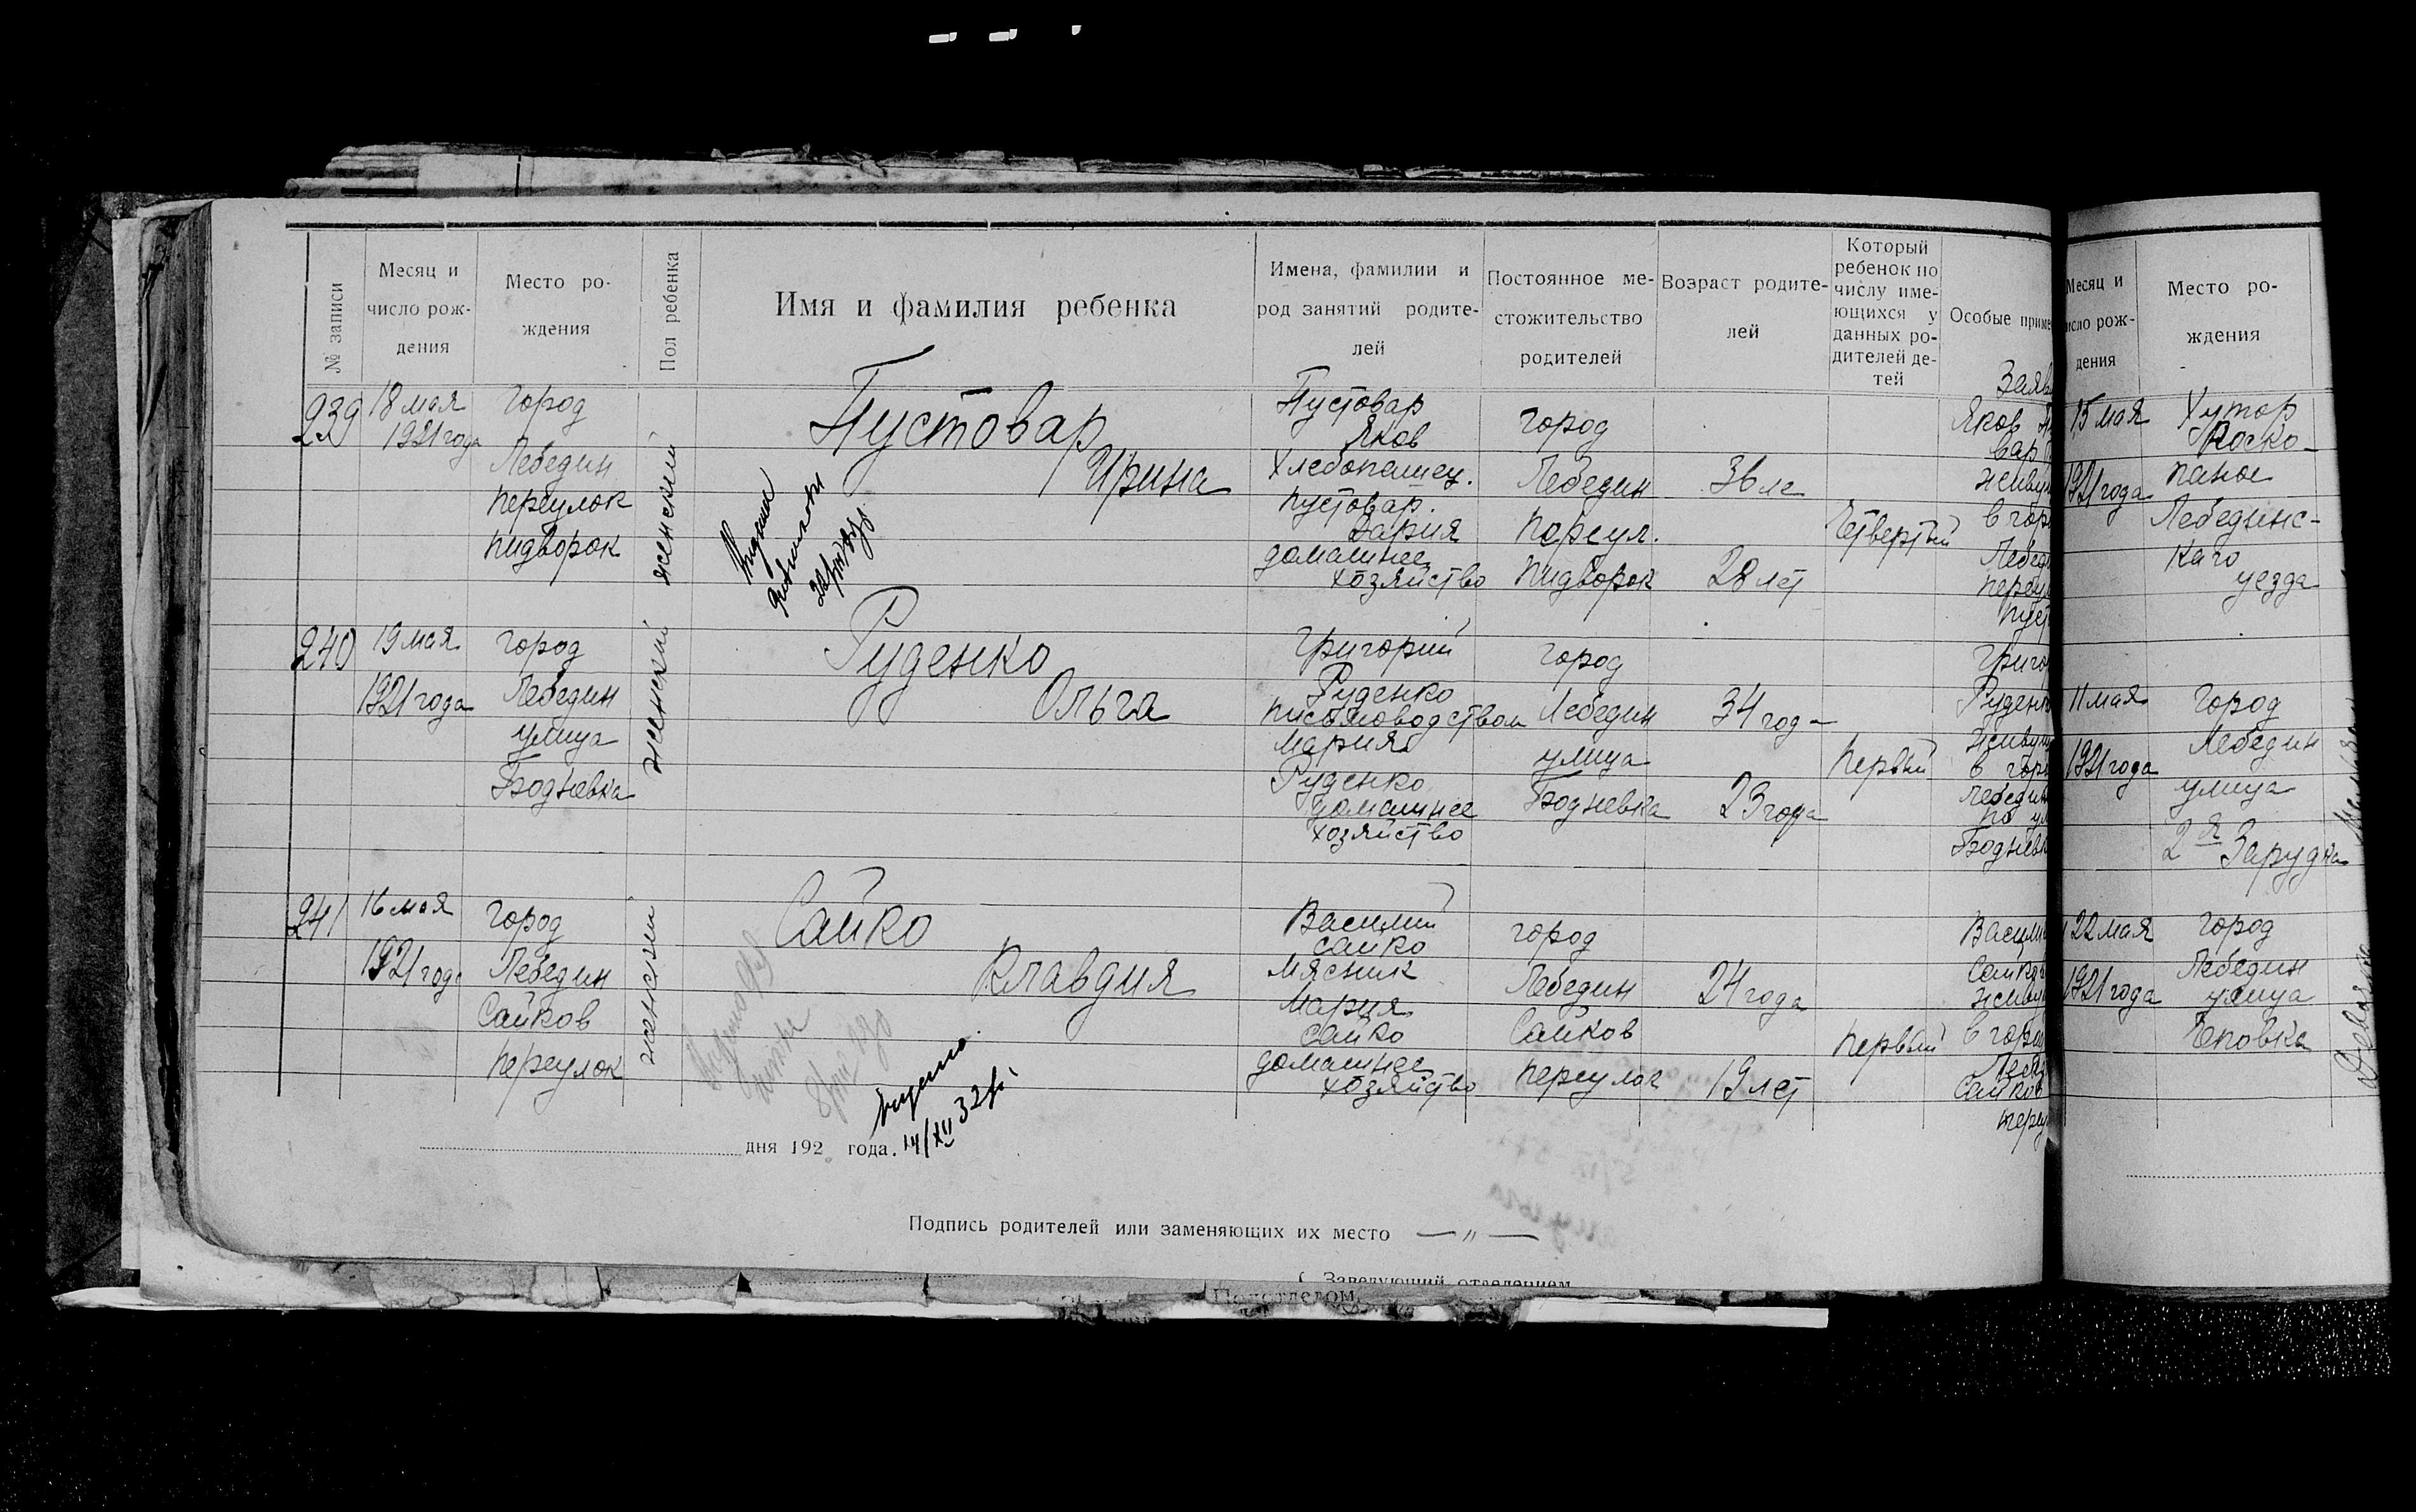 № записи
Месяц и
число рож-
дения
Место ро-
ждения
Пол ребенка
Имя и фамилия ребенка
Имена, фамилии и
род занятий родите-
лей
Постоянное ме-
стожительство
родителей
Возраст родите-
лей
Который
ребенок по
числу име-
ющихся у
данных ро-
дителей де-
тей
Особые приме
239
18 мая
1921 года
город
Лебедин
переулок
пидворок
женский
Пустовар
Ирина
Пустовар
Яков
Хлебопашец.
Пустовар.
Дария
домашнее
хозяйство
город
Лебедин
Переул.
пидворок
36 ле
28 лет
Четвертый
Заяв
Яков
вар
живу
в гор
Лебед
переу
240
19 мая
1921 года
город
Лебедин
улица
Бодневка
женский
Руденко
Ольга
Григорий
Руденко
письмоводством
Мария
Руденко
домашнее
хозяйство
город
Лебедин
улица
Бодневка
34 год
23 года
Первый
Григо
Руденк
живу
в гор
Лебедин
по ул
Бодневк
241
16 мая
1921 год
город
Лебедин
Сайков
переулок
женский
Сайко
Клавдия
14/XII 32 р.
Василий
Сайко
Мясник
Мария
Сайко
домашнее
хозяйство
город
Лебедин
Сайков
переулок
24 года
19 лет
Первый
Васили
Сайко
живу
в гор
Сайков
переу
дня 192 года.
Подпись родителей или заменяющих их место — „ —
Заведующий отделением
Подотделом
Месяц и
исло рож-
дения
Место ро-
ждения
15 мая
1921 года
Хутор
Роско-
паное
Лебединс-
каго
уезда
11 мая
1921 года
город
Лебедин
улица
2я Зарудка
22 мая
1921 года
город
Лебедин
улица